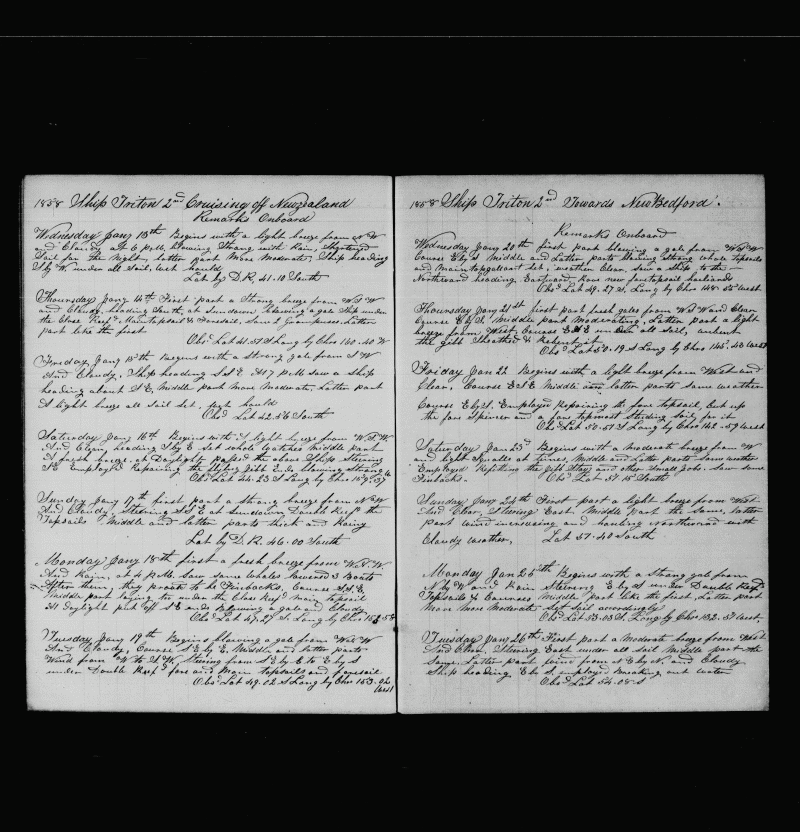 1858 Ship Triton 2nd Cruising off Newzealand
Remarks Onboard
Wednesday Jany 13th Begins with a light breeze from N W
and Cloudy at 6 P.M. blowing Strong with Rain, Shortened
Sail for the Night, latter part More Moderate, Ship heading
S by W under all sail, wet hould
Lat by D.R. 41.10 South
Thoursday Jany 14th First part a Strong breeze from W S W
and Cloudy, heading South, at sundown blowing a gale Ship under
the Close Reefd Maintopsail & Foresail, Saw 2 Grampuses, Latter
part like the first
Obsd Lat 41.51 S Long by Chro 160.40 W
Friday Jany 15th Begins with a Strong breeze from S W
And Cloudy, Ship heading S S E At 7 P.M. saw a ship
heading about S E, Middle part More Moderate, Latter part
A light breeze all sail set, wet hould
Obsd Lat 42.56 South
Saturday Jany 16th Begins with A light breeze from W.S.W
And Clear, heading S by E Set whole watches Middle part
A fresh breeze, at Daylight passd the above Ship Steering
S E Employd Repairing the flying Jibb Ends blowing strong
Obsd Lat 44.23 S Long by Chro 159.37
Sunday Jany 17th first part a strong breeze from N W
And Cloudy, Steering S S E at Sundown Double Reefd the
Topsails Middle and latter parts thick and Rainy
Lat by D.R. 46.00 South
Monday Jany 18th first a fresh breeze from W N W
And Rain, at 4 P.M. Saw some Whales Lowered 3 Boats
After them, they proved to be Finbacks, Course S S E,
Middle part laying to under the Close Reefd main topsail
At Daylight put off S E ends Blowing a gale and Cloudy
Obsd Lat 47.27 S. Long by Chro 153.58
Tuesday Jany 19th Begins blowing a gale from W N W
And Cloudy, Course S E by E. Middle and latter parts
Wind from W to S.W. Steering from S E by E to E by S
under Double Reefd fore and Main topsails and foresail
Obsd Lat 49.02 S Long by Chro 153.02
West
1858 Ship Triton 2nd Towards New Bedford.
Remarks Onboard
Wednesday Jany 20th first part blowing a gale from W S W
Course E by S Middle and Latter parts blowing Strong whole topsails
and maintopgallant set, weather Clear, saw a ship to the
Northward heading Eastward, hove new foretopsail
Obsd Lat 49.27 S, Long by Chro 148.55 West
Thoursday Jany 21st first part fresh gales from W S W and Clear
Course E by S. Middle part Moderating, Latter part a light
breeze from West Course E S E under all sail, unbent
the Jibb Sheathed & Rebent it
Obsd Lat 50.19 S Long by Chro 145.40 West
Friday Jan 22 Begins with a light breeze from West and
Clear, Course E S E Middle and latter parts same weather
Course E by S. Employed Repairing the fore topsail, bent up
the fore Spencer and a fore topmost studing Sail for it
Obsd Lat 50.51 S Long by Chro 142.59 West
Saturday Jan 23d Begins with a moderate breeze from W
and light Squalls at times, Middle and Latter parts Same weather
Employed Refitting the Jibb Stay and other Small Jobs. Saw some
Finbacks. Obsd Lat 51.15 South
Sunday Jany 24th First part a light breeze from West
And Clear, Steering East. Middle part the Same, latter
part wind increasing and hauling Northward with
Cloudy weather, Lat 51.40 South
Monday Jan 25th Begins with a strong gale from
N by W and Rain Steering E by S under Double Reefd
Topsails & Courses Middle part like the first, Latter part
More More Moderate Set Sail accordingly
Obsd Lat 53.05 S. Long by Chro 132.37 West,
Tuesday Jan 26th First part a Moderate breeze from West
And Clear, Steering East under all sail Middle part the
Same. Latter part wind from N E by N, and Cloudy
Ship heading E by S, employed Breaking out water
Obsd Lat 54.08 S